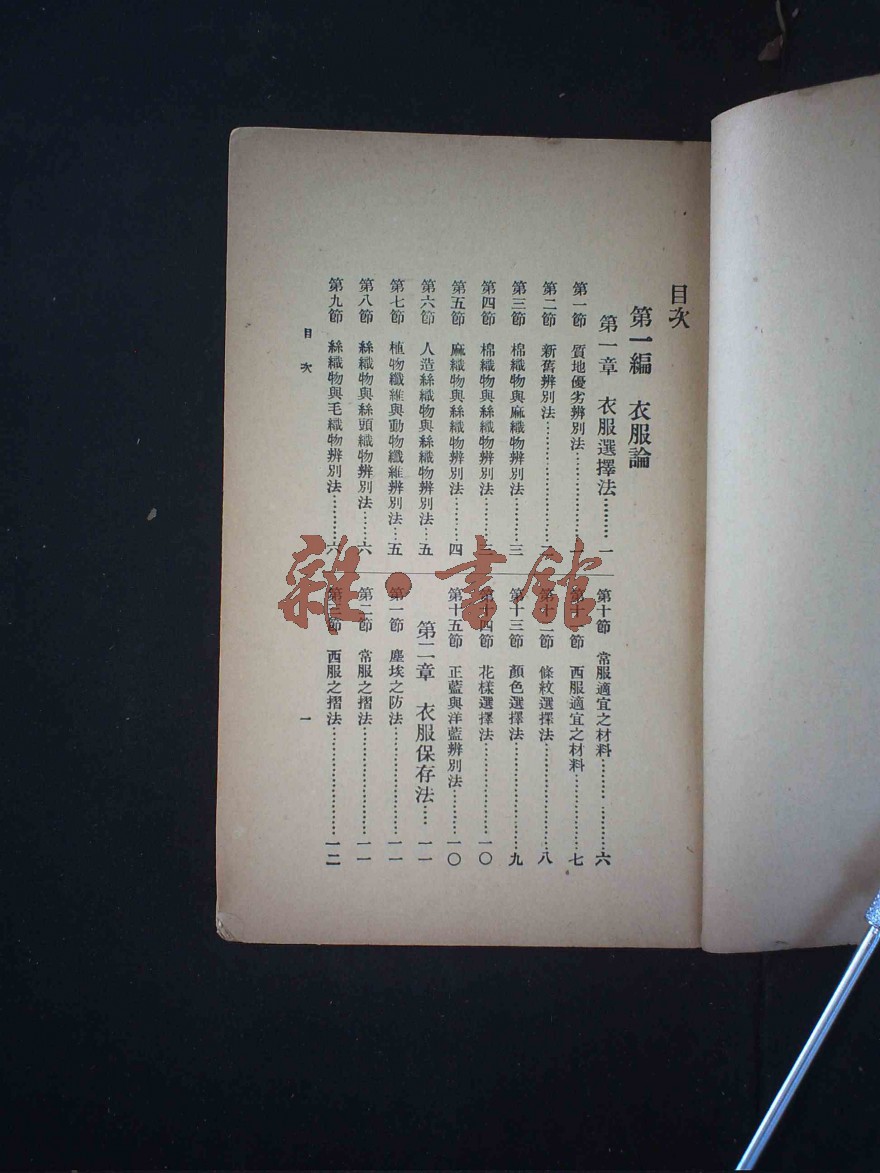 目次
第一編　衣服論
第一章　衣服選擇法………一
第一節　質地優劣辨別法………
第二節　新舊辨別法………
第三節　棉織物與麻織物辨別法………三
第四節　棉織物與絲織物辨別法………三
第五節　麻織物與絲織物辨別法………四
第六節　人造絲織物與絲織物辨別法………五
第七節　植物纖維與動物纖維辨別法………五
第八節　絲織物與絲頭織物辨別法………六
第九節　絲織物與毛織物辨別法………六
第十節　常服適宜之材料………六
第十一節　西服適宜之材料………七
第十二節　條紋選擇法………八
第十三節　顏色選擇法………九
第十四節　花樣選擇法………一〇
第十五節　正藍與洋藍辨別法………一〇
第二章　衣服保存法………一一
第一節　塵埃之防法………一一
第二節　常服之摺法………一一
第三節　西服之摺法………一二
目次
一
雜・書館